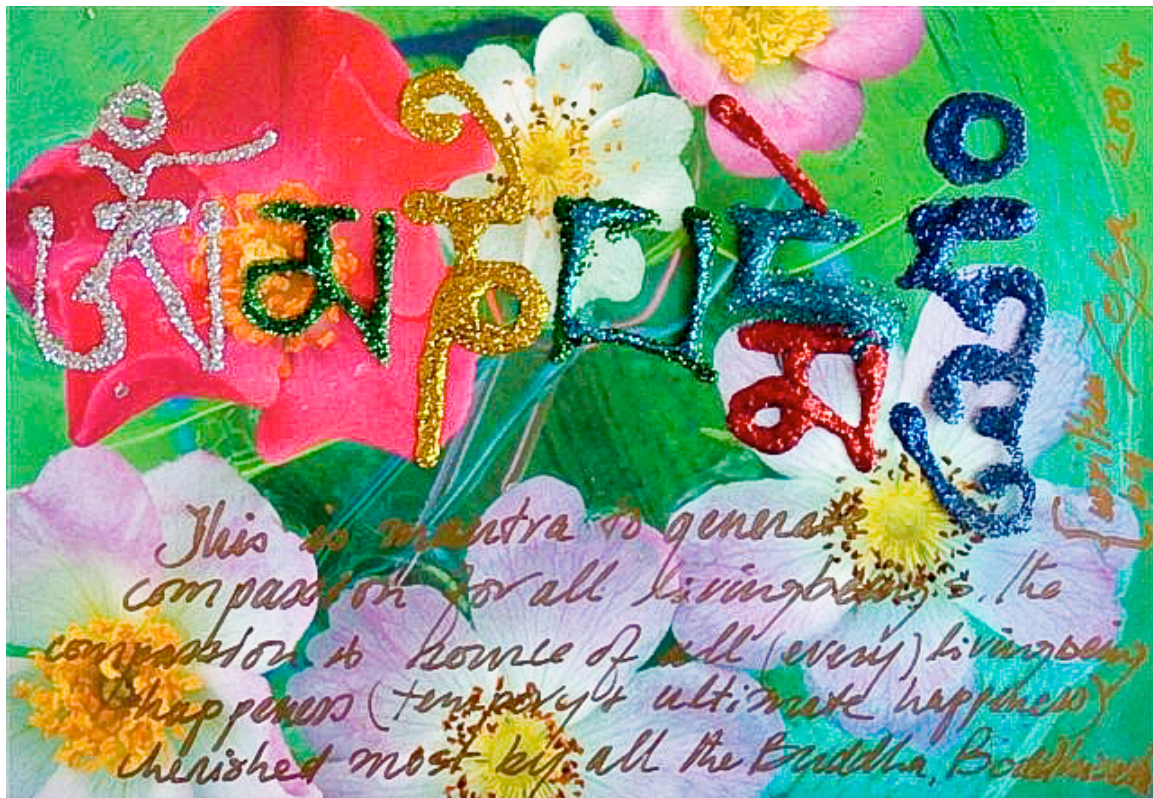 ཨོཾ མ ཎི པ དྨེ ཧཱུཾ
This is mantra to generate
compassion for all livingbeings. The
compassion is source of all (every) livingbeing
happeness (tempory & ultimate happeness)
cherished most by all the Buddha,
written
by Zopa 2004